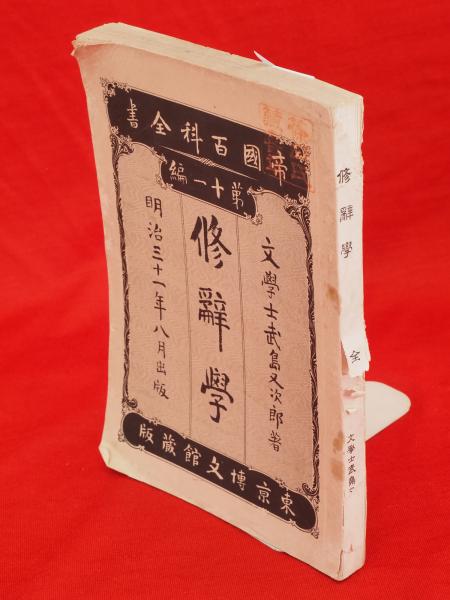 帝國百科全書
第十一編
文學士武島又次郎著
修辭學
明治三十一年八月出版
東京博文館蔵版
修辭學 全
文學士武島